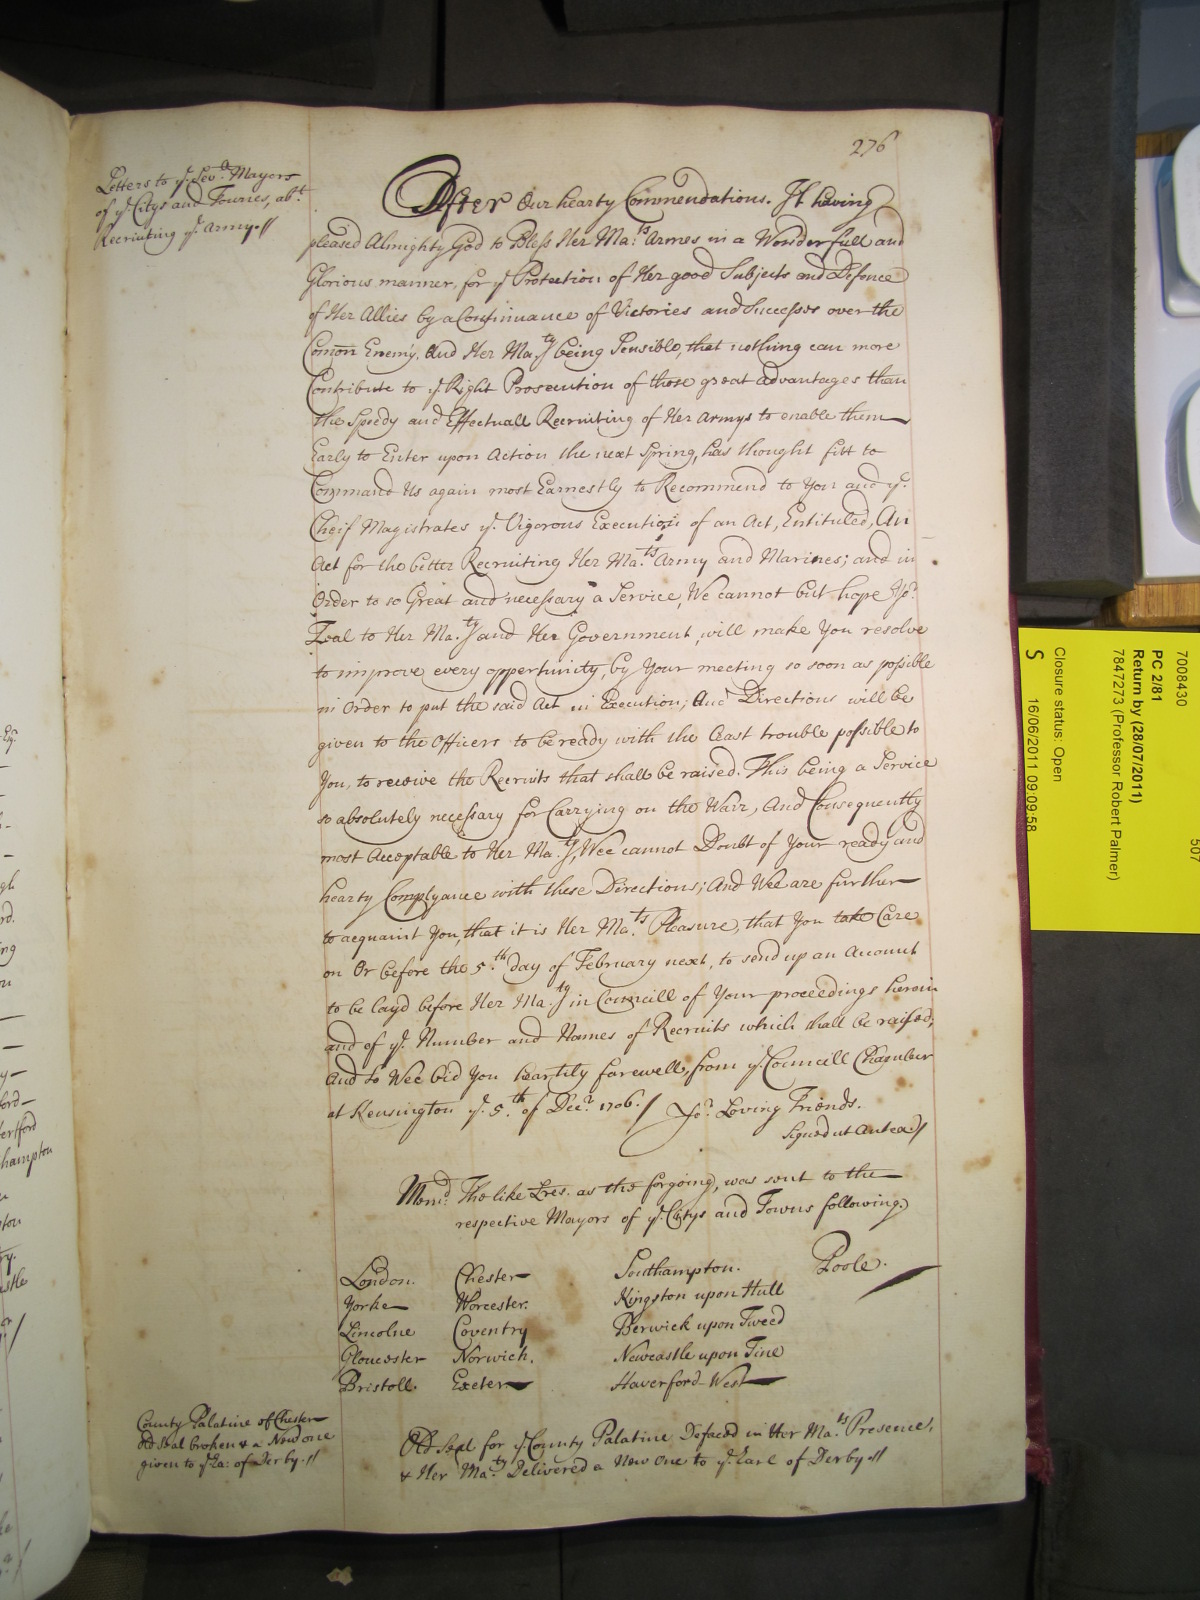 276
Letters to ye. Sevall Mayors
of ye Citys and Townes, abt.
Recruiting ye. Army.//
After Our hearty Commendations. It having
pleased Almighty God to Bless Her Ma:ts Armes in a Wonderfull and
Glorious manner, for ye Protection of Her good Subjects and Defence
of Her Allies by a Continuance of Victories and Successes over the
Comon Enemy. And Her Ma:ty being Sensible, that nothing can more
Contribute to ye Right Prosecution of those great advantages than
the Speedy and Effectuall Recruiting of Her Armys to enable them
Early to Enter upon Action the next Spring, has thought fitt to
Command Us again most Earnestly to Recommend to You and ye.
Cheif Magistrates ye. Vigorous Execution of an Act, Entituled, An
Act for the better Recruiting Her Ma:ts Army and Marines; and in
Order to so Great and necessary a Service, We cannot but hope Yor.
Zeal to Her Ma:ty and Her Government, will make You resolve
to improve every opportunity, by Your meeting so soon as possible
in Order to put the said Act in Execution; And Directions will be
given to the Officers to be ready with the least trouble possible to
You, to receive the Recruits that shall be raised. This being a Service
so absolutely necessary for Carrying on the Warr, And Consequently
most Acceptable to Her Ma:ty, Wee cannot Doubt of Your ready and
hearty Complyance with these Directions; And Wee are further
to acquaint You, that it is Her Ma:ts Pleasure, that You take Care
on Or before the 5.th day of February next, to send up an Account
to be layd before Her Ma:ty in Councill of Your proceedings herein
and of ye. Number and Names of Recruits which shall be raised;
And So Wee bid You heartily farewell, from ye. Councill Chamber
at Kensington ye. 5.th of Decr. 1706./ Yor. Loving Friends.
Signed ut Antea/
Memd. The like Lres. as the forgoing, was sent to the
respective Mayors of ye. Citys and Towns following.
London. Chester Southampton. Poole.
Yorke Worcester. Kingston upon Hull
Lincolne Coventry Berwick upon Tweed
Gloucester Norwich. Newcastle upon Tine
Bristoll. Exeter Haverford-West
County Palatine of Chester
old Seal broken & a New one
given to ye Ea: of Derby.//
Old Seal for ye County Palatine Defaced in Her Ma:ts Presence,
& Her Ma:ty Delivered a New One to ye. Earl of Derby.//
7008430
507
PC 2/81
Return by (28/07/2011)
7847273 (Professor Robert Palmer)
Closure status: Open
S 16/06/2011 09:09:58